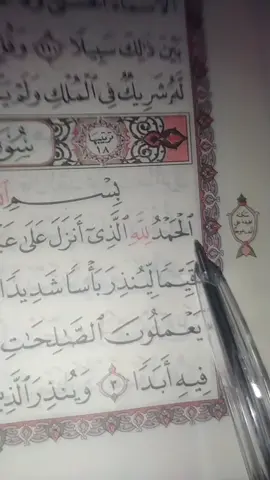 بَيْنَ ذَٰلِكَ سَبِيلًا ﴿١١٠﴾ وَقُلِ
لَّهُ شَرِيكٌ فِي الْمُلْكِ وَلَمْ
تَرْتِيبُهَا ١٨
سُورَ
بِسْمِ
الْحَمْدُ لِلَّهِ الَّذِي أَنزَلَ عَلَىٰ
قَيِّمًا لِّيُنذِرَ بَأْسًا شَدِيدًا
يَعْمَلُونَ الصَّالِحَاتِ
فِيهِ أَبَدًا ﴿٣﴾ وَيُنذِرَ الَّذِي